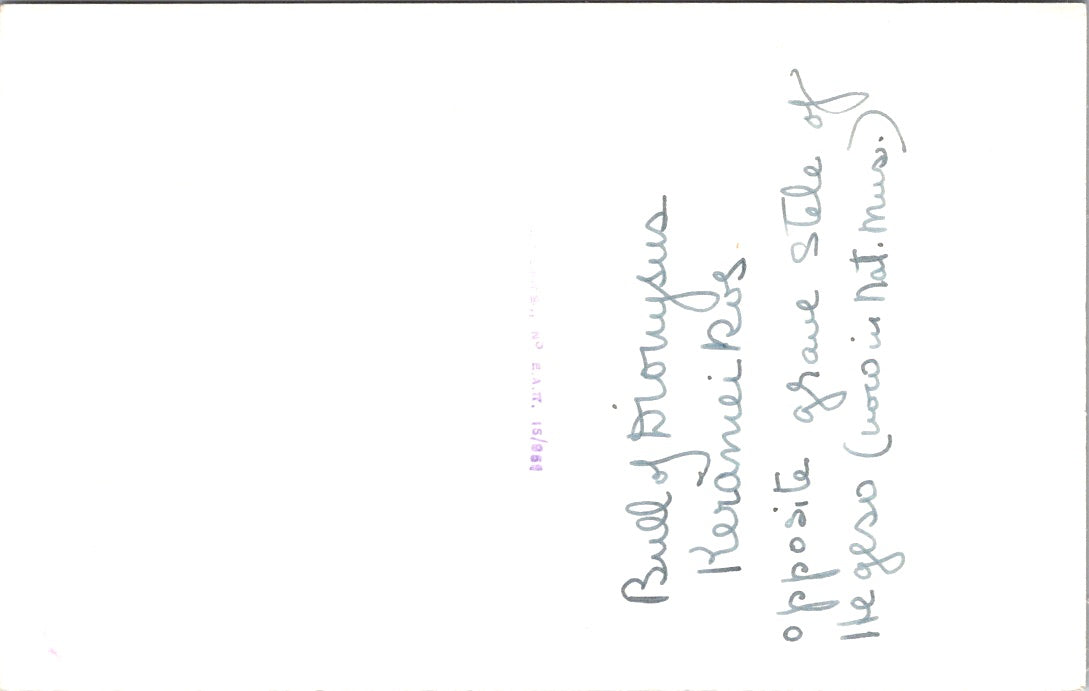 Nº Ε.Λ.Π. 15/969
Bull of Dionysus
Kerameikos
opposite grave stele of
Hegeso (now in Nat. Mus.)